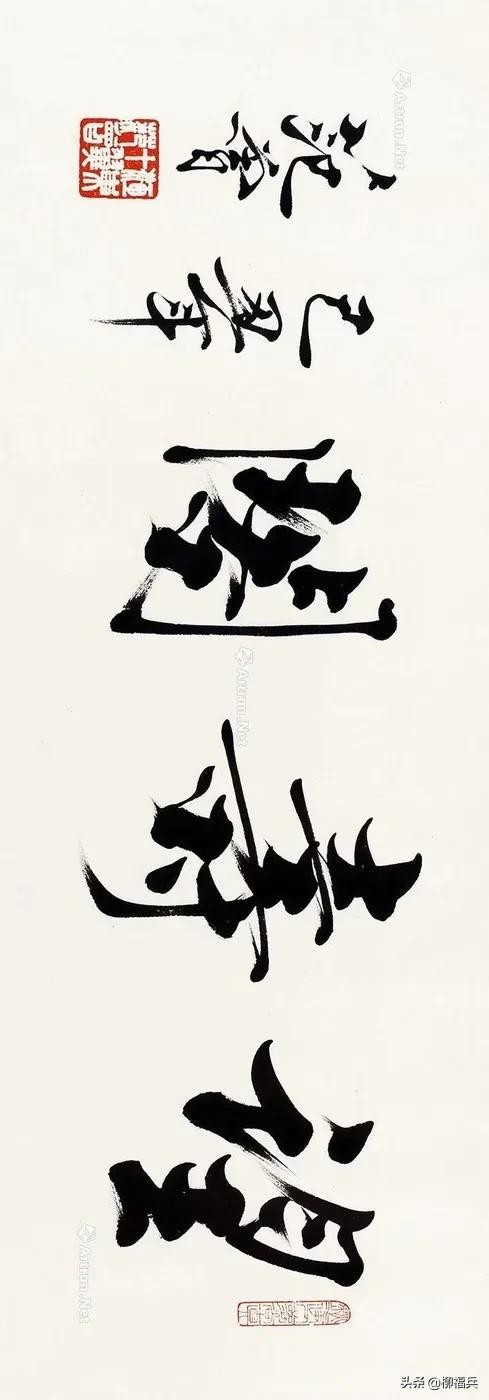 望壽閣
己丑年
范曾
Artron.Net
Artron.Net
Artron.Net
头条 @柳福兵